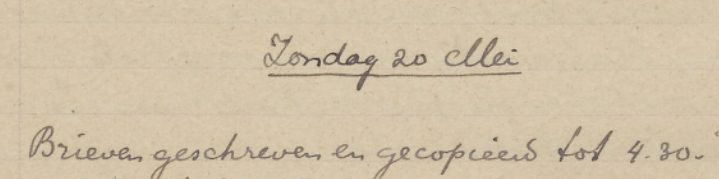 Zondag 20 Mei
Brieven geschreven en gecopieerd tot 4.30.